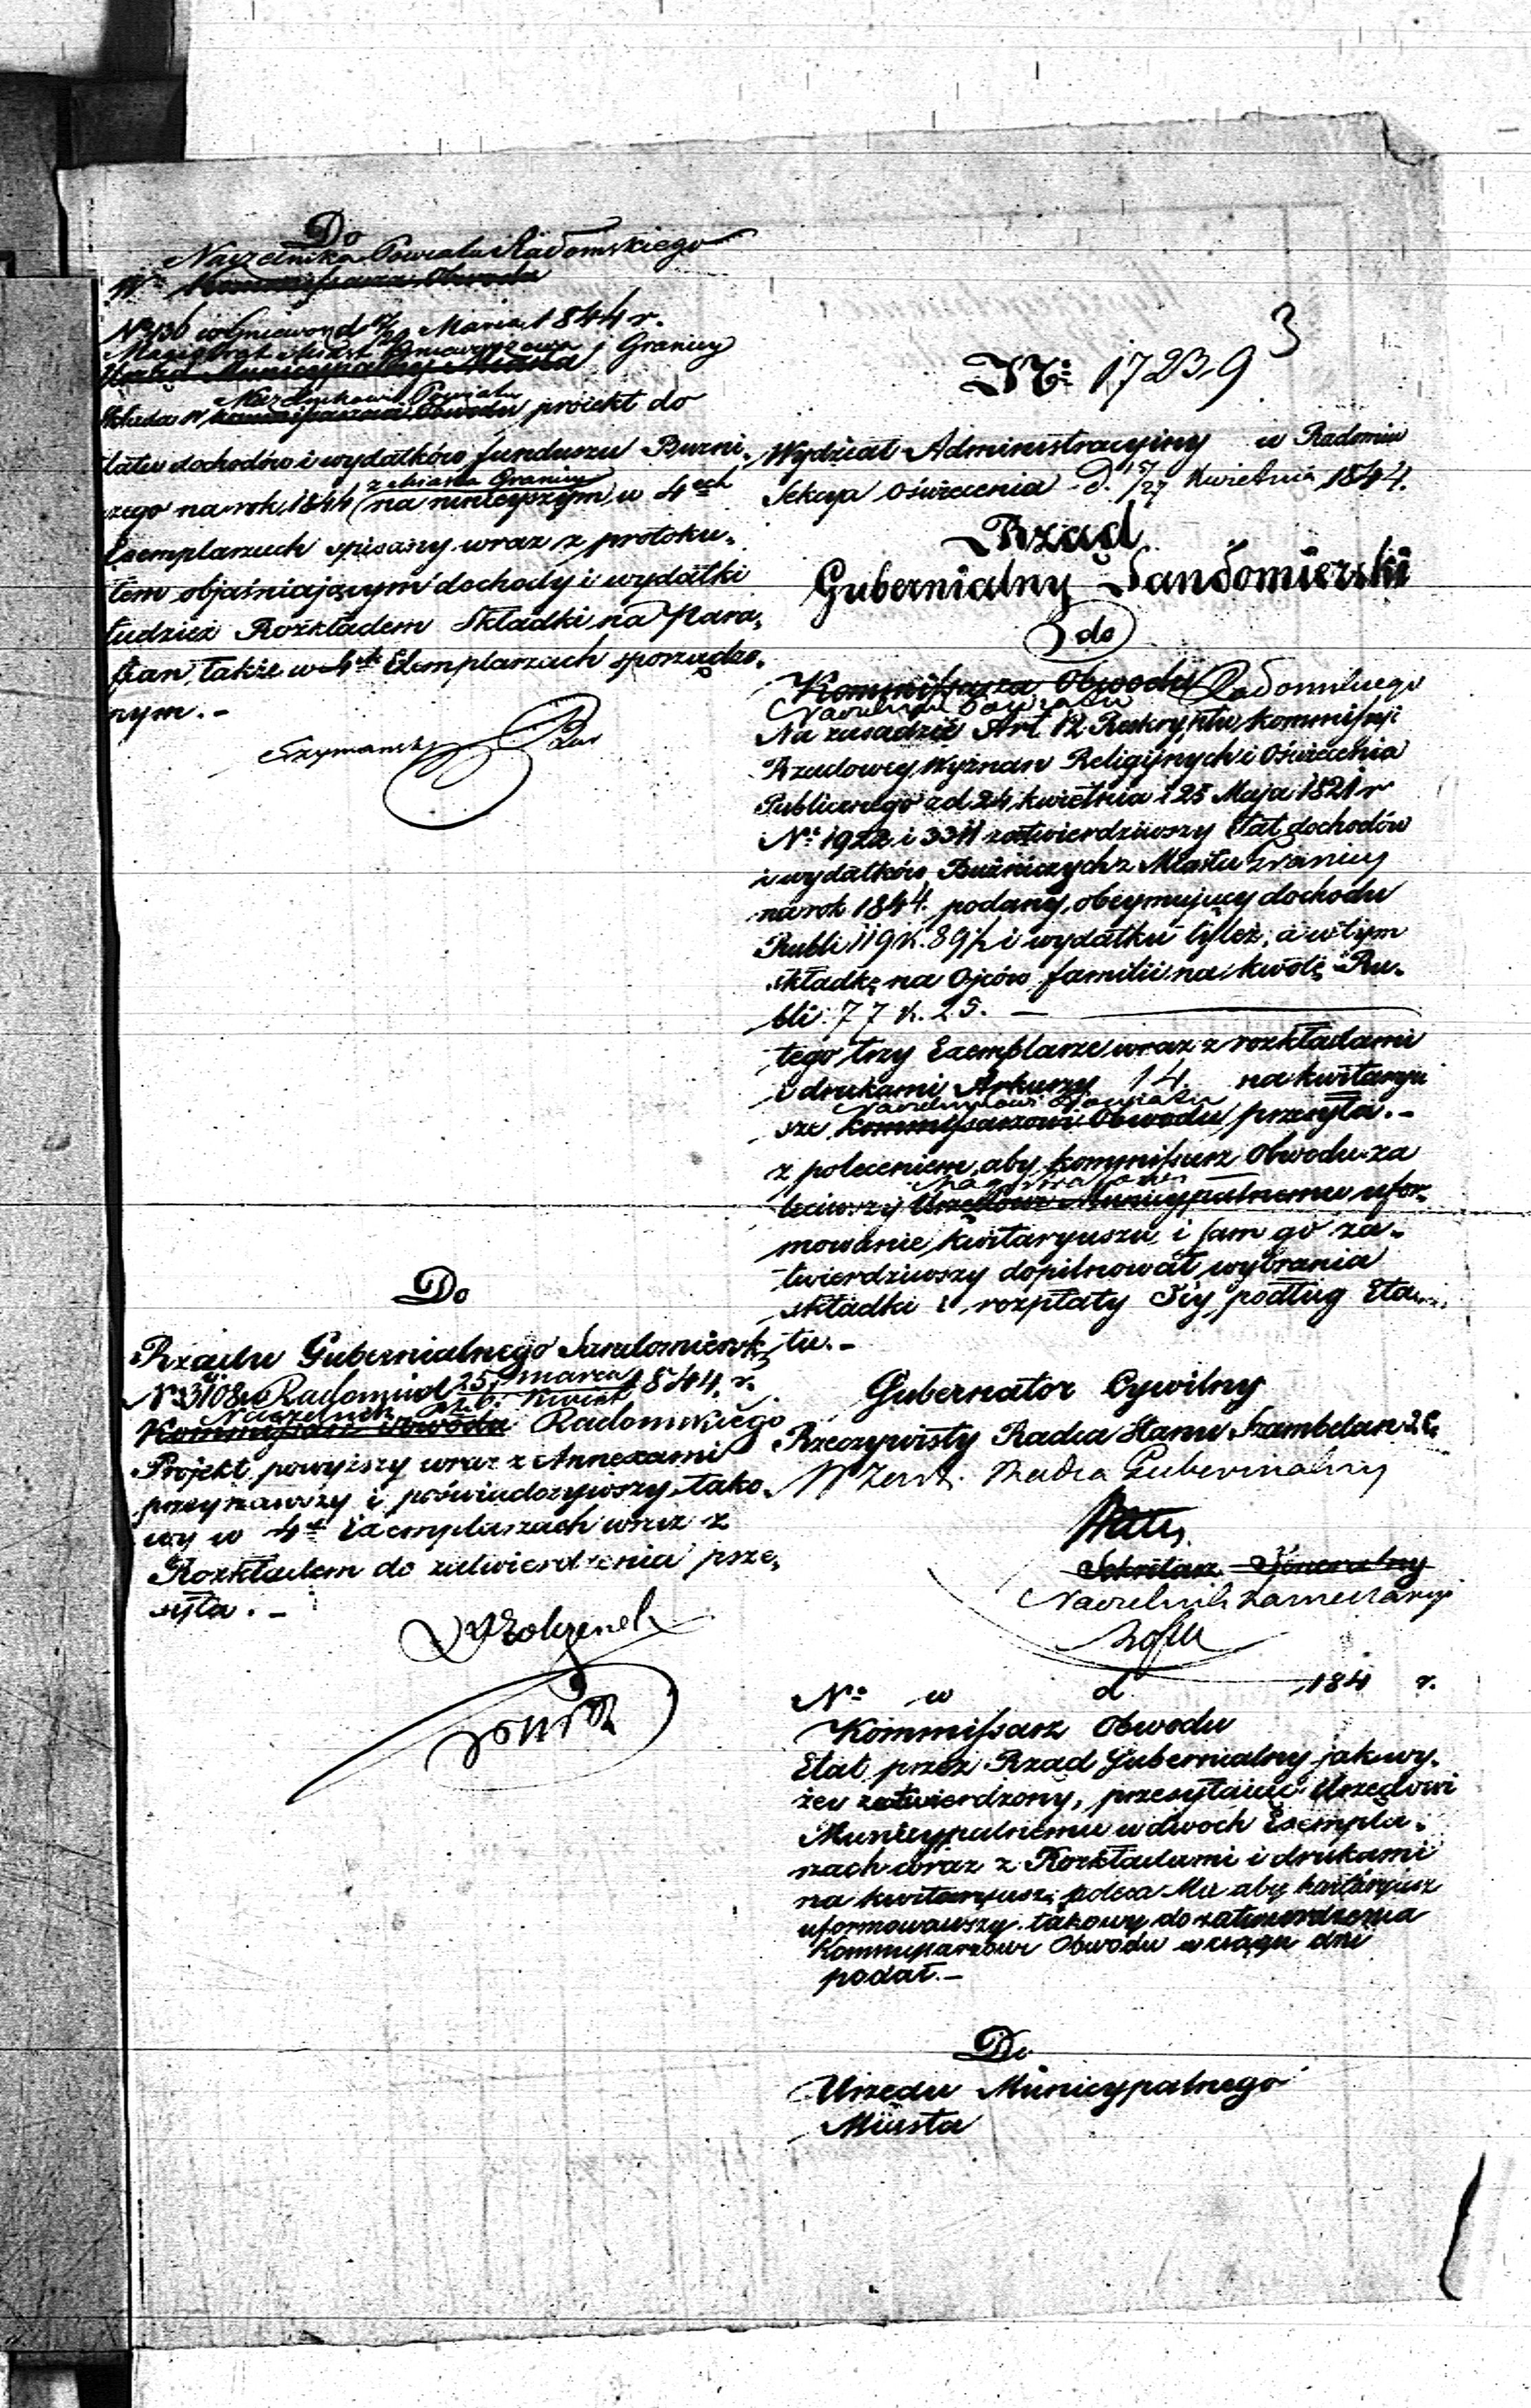 Do
Naczelnika Powiatu Radomskiego
Wo Kommissarza Obwodu
No 436 w Gniewon d 17/29 Marca 1844 r.
Magistrat Miast Gniewoszowa i Granicy
Urząd Municypalny Miasta
Naczelnikowi Powiatu
składa W Kommissarzowi Obwodu projekt do
Etatu dochodów i wydatków funduszu Buźni-
z Miasta Granicy
czego na rok 1844 na ninieyszym w 4ech
Exemplarzach spisany wraz z protoku-
łem objaśniającym dochody i wydatki
tudzież Rozkładem Składki na Para-
fian także w 4ch Exemplarzach sporządzo-
nym. -
Szymański
Do
Rządu Gubernialnego Sandomiersk:
No 3108 w Radomiu d 25 marca 1844 r.
6 Kwiet
Naczelnik
Kommissarz Obwodu Radomskiego
Projekt powyższy wraz z Annexami
przeyrzawszy i poświadczywszy tako-
wy w 4ch Exemplarzach wraz z
Rozkładem do zatwierdzenia prze-
syła. -
3
No 17239
Wydział Administracyiny w Radomiu
Sekcya Oświecenia d. 15/27 Kwietnia 1844.
Rząd
Gubernialny Sandomierski
do
Kommissarza Obwodu Radomskiego
Naczelnika Powiatu
Na zasadzie Art 12 Reskryptu Kommissyi
Rządowey Wyznań Religiynych i Oświecenia
Publicznego z d 24 kwietnia i 25 Maja 1821 r
No 1922 i 3311 zatwierdziwszy Etat dochodów
i wydatków Buźniczych z Miasta Granicy
na rok 1844. podany, obeymujący dochodu
Rubli 119 k. 89½ i wydatku tyleż, a w tym
składkę na Ojców familii na kwotę Ru-
bli 77 k. 25. -
tego trzy Exemplarze wraz z rozkładami
i drukami Arkuszy 14. na kwitaryu
Naczelnikowi Powiatu
sze Kommissarzowi Obwodu przesyła. -
z poleceniem, aby Kommissarz Obwodu za
Magistratowi
leciwszy Urzędowi Municypalnemu ufor-
mowanie kwitaryuszu i sam go za-
twierdziwszy dopilnował wybrania
składki i rozpłaty Jéy podług Eta-
tu. -
Gubernator Cywilny
Rzeczywisty Radca Stanu Szambelan
W Zast. Radca Gubernialny
Sekretarz Jeneralny
Naczelnik Kancellaryi
No w d 184 r.
Kommissarz Obwodu
Etat przez Rząd Gubernialny jak wy-
żey zatwierdzony, przesyłaiąc Urzędowi
Municypalnemu w dwóch Exempla-
rzach wraz z Rozkładami i drukami
na kwitaryusz, poleca Mu aby kwitaryusz
uformowawszy takowy do zatwierdzenia
Kommissarzowi Obwodu w ciągu dni
podał. -
Do
Urzędu Municypalnego
Miasta